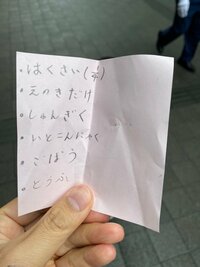 ・はくさい(¼)
・えのきだけ
・しゅんぎく
・いとこんにゃく
・ごぼう
・とうふ